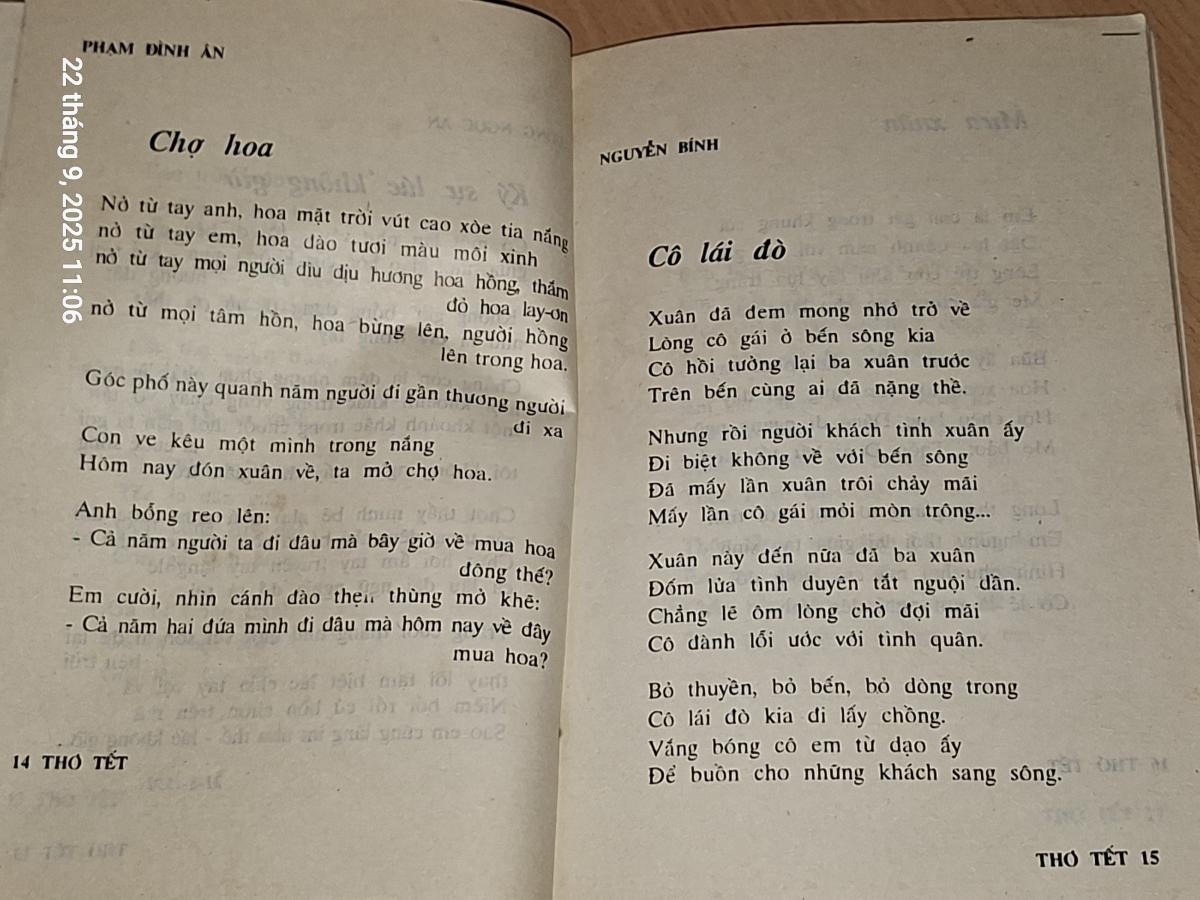 PHẠM ĐÌNH ÂN
22 tháng 9, 2025 11:06
Chợ hoa
Nở từ tay anh, hoa mặt trời vút cao xòe tia nắng
nở từ tay em, hoa đào tươi màu môi xinh
nở từ tay mọi người dìu dịu hương hoa hồng, thắm
đỏ hoa lay-ơn
nở từ mọi tâm hồn, hoa bừng lên, người hồng
lên trong hoa.
Góc phố này quanh năm người đi gần thương người
đi xa
Con ve kêu một mình trong nắng
Hôm nay đón xuân về, ta mở chợ hoa.
Anh bỗng reo lên:
- Cả năm người ta đi đâu mà bây giờ về mua hoa
đông thế?
Em cười, nhìn cánh đào thẹn thùng mở khẽ:
- Cả năm hai đứa mình đi đâu mà hôm nay về đây
mua hoa?
14 THƠ TẾT
NGUYỄN BÍNH
Cô lái đò
Xuân đã đem mong nhớ trở về
Lòng cô gái ở bến sông kia
Cô hồi tưởng lại ba xuân trước
Trên bến cùng ai đã nặng thề.
Nhưng rồi người khách tình xuân ấy
Đi biệt không về với bến sông
Đã mấy lần xuân trôi chảy mãi
Mấy lần cô gái mỏi mòn trông...
Xuân này đến nữa đã ba xuân
Đốm lửa tình duyên tắt nguội dần.
Chẳng lẽ ôm lòng chờ đợi mãi
Cô đành lỗi ước với tình quân.
Bỏ thuyền, bỏ bến, bỏ dòng trong
Cô lái đò kia đi lấy chồng.
Vắng bóng cô em từ dạo ấy
Để buồn cho những khách sang sông.
THƠ TẾT 15